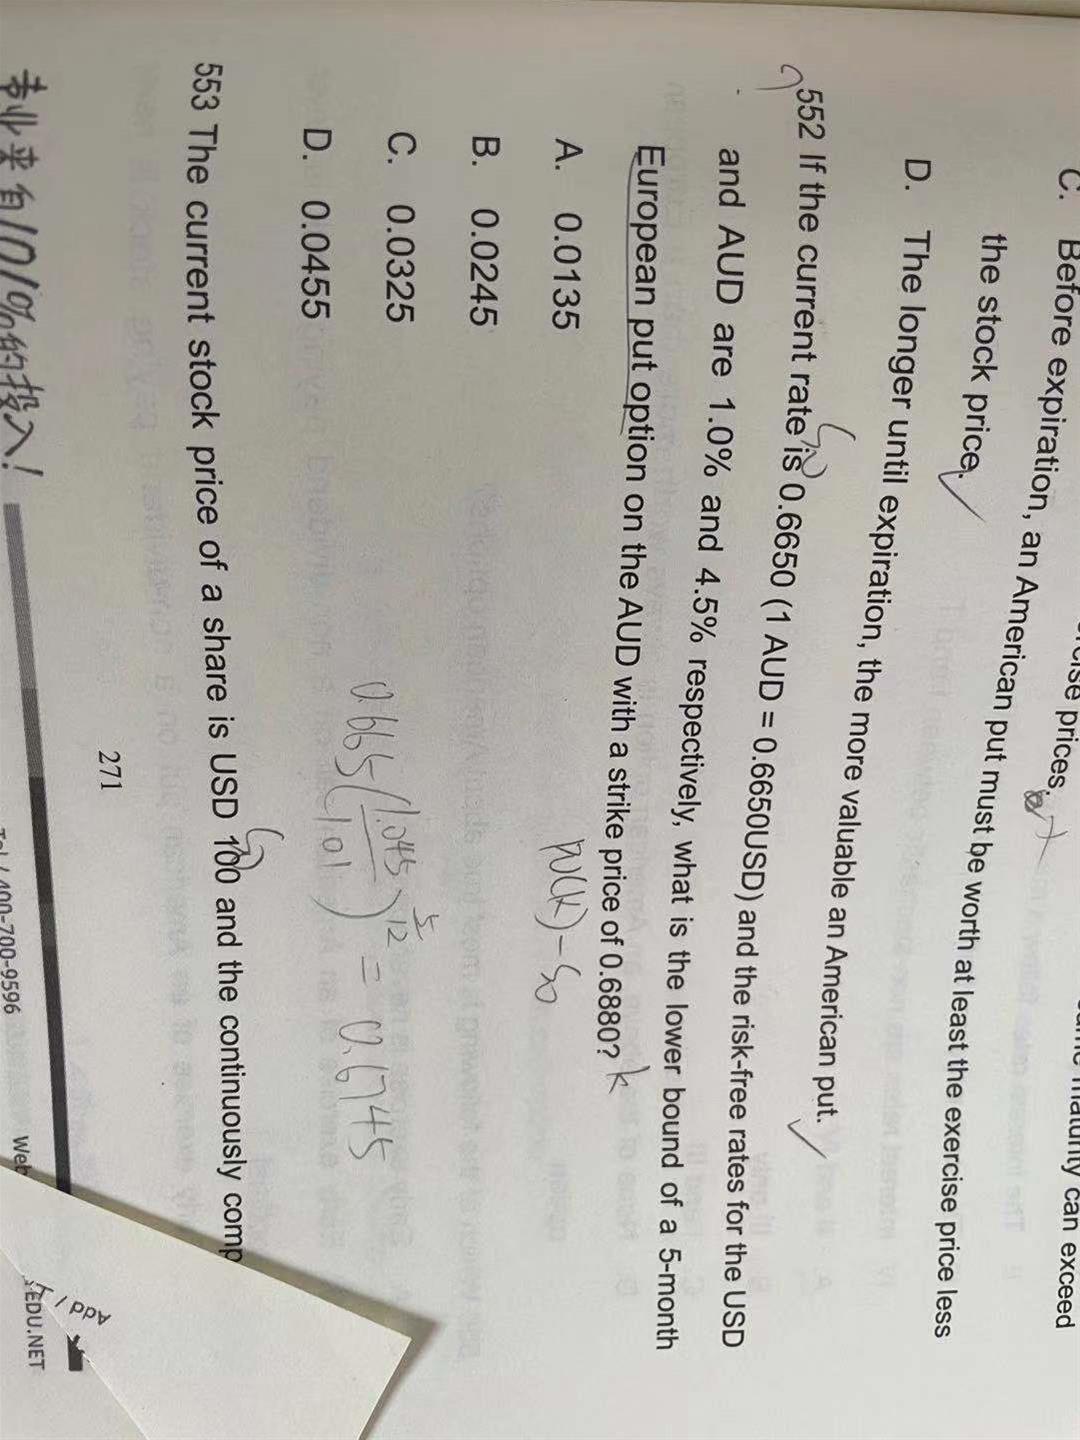 prices.
maturity can exceed
C. Before expiration, an American put must be worth at least the exercise price less
the stock price.
D. The longer until expiration, the more valuable an American put.
S0
552 If the current rate is 0.6650 (1 AUD = 0.6650USD) and the risk-free rates for the USD
and AUD are 1.0% and 4.5% respectively, what is the lower bound of a 5-month
European put option on the AUD with a strike price of 0.6880? k
A. 0.0135
PV(k) - S0
B. 0.0245
C. 0.0325
0.665 (1.045/1.01)^5/12 = 0.6745
D. 0.0455
S0
553 The current stock price of a share is USD 100 and the continuously comp
271
专业来自101%的投入!
Tel / 400-700-9596
Web
EDU.NET
Add /